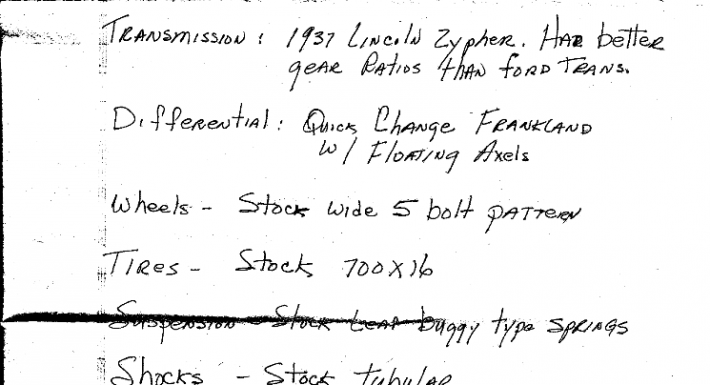 Transmission: 1937 Lincoln Zypher. Had better
gear Ratios than ford Trans.
Differential: Quick Change Frankland
w/ Floating Axels
Wheels - Stock wide 5 bolt pattern
Tires - Stock 700x16
Suspension - Stock Leaf buggy type springs
Shocks - Stock tubular